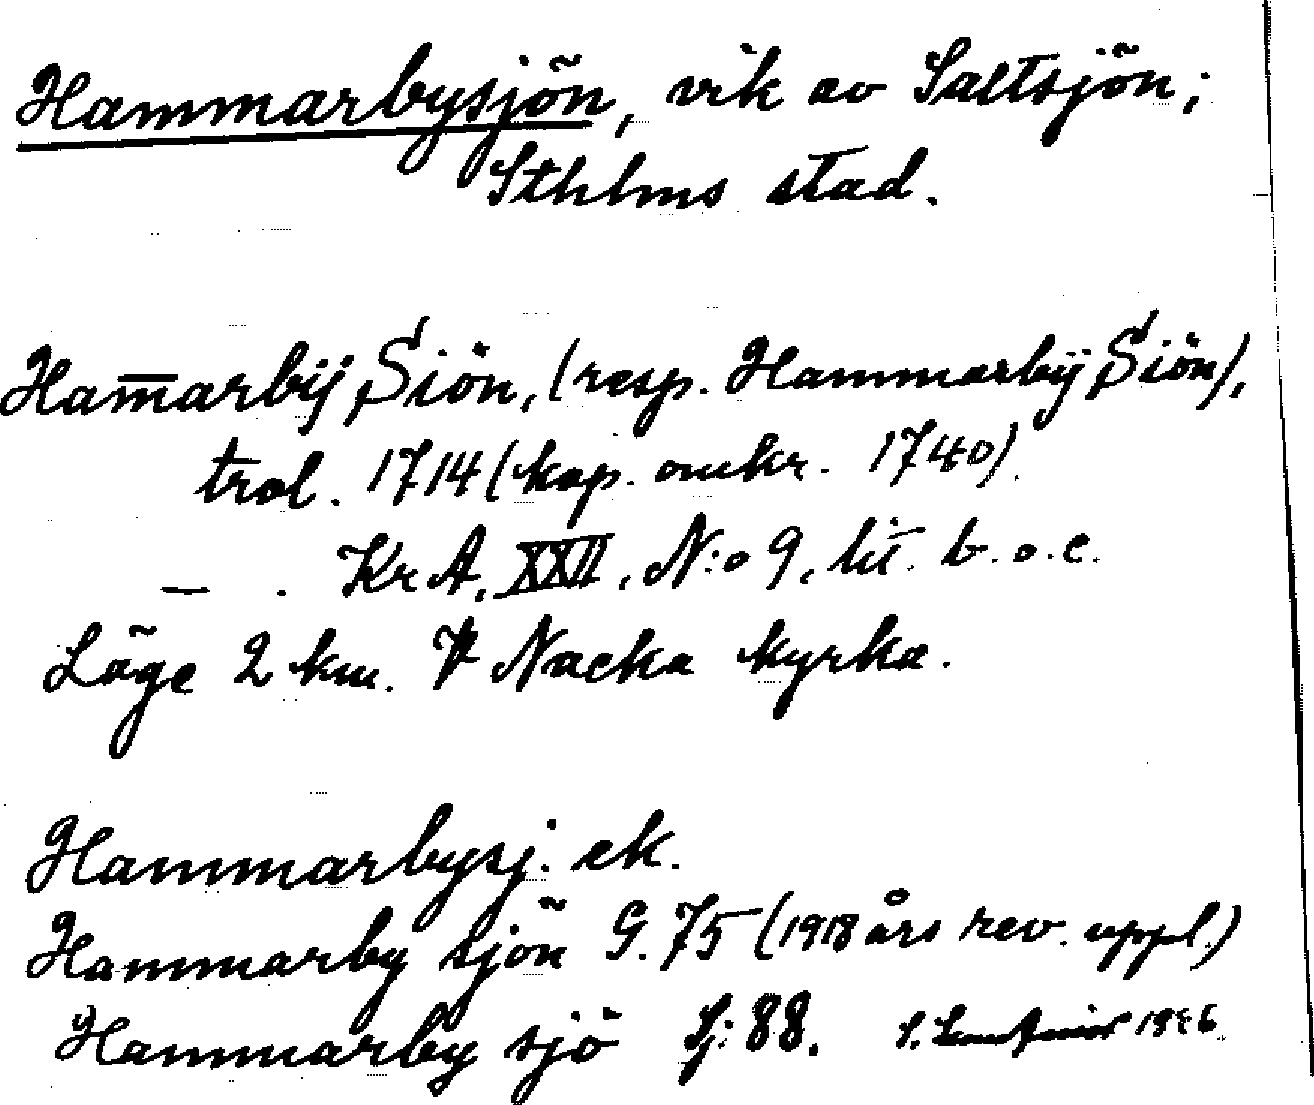 Hammarbysjön, vik av Saltsjön;
Sthlms stad.
Ham̅arbÿ Siön, (resp. Hammarbÿ Siön),
trol. 1714 (kop. omkr. 1740).
— . Kr A, XXII, N:o 9, lit. b. o. c.
Läge 2 km. V Nacka kyrka.
Hammarbysj. ek.
Hammarby sjön G. 75 (1918 års rev. uppl.)
Hammarby sjö Sj: 88. S.